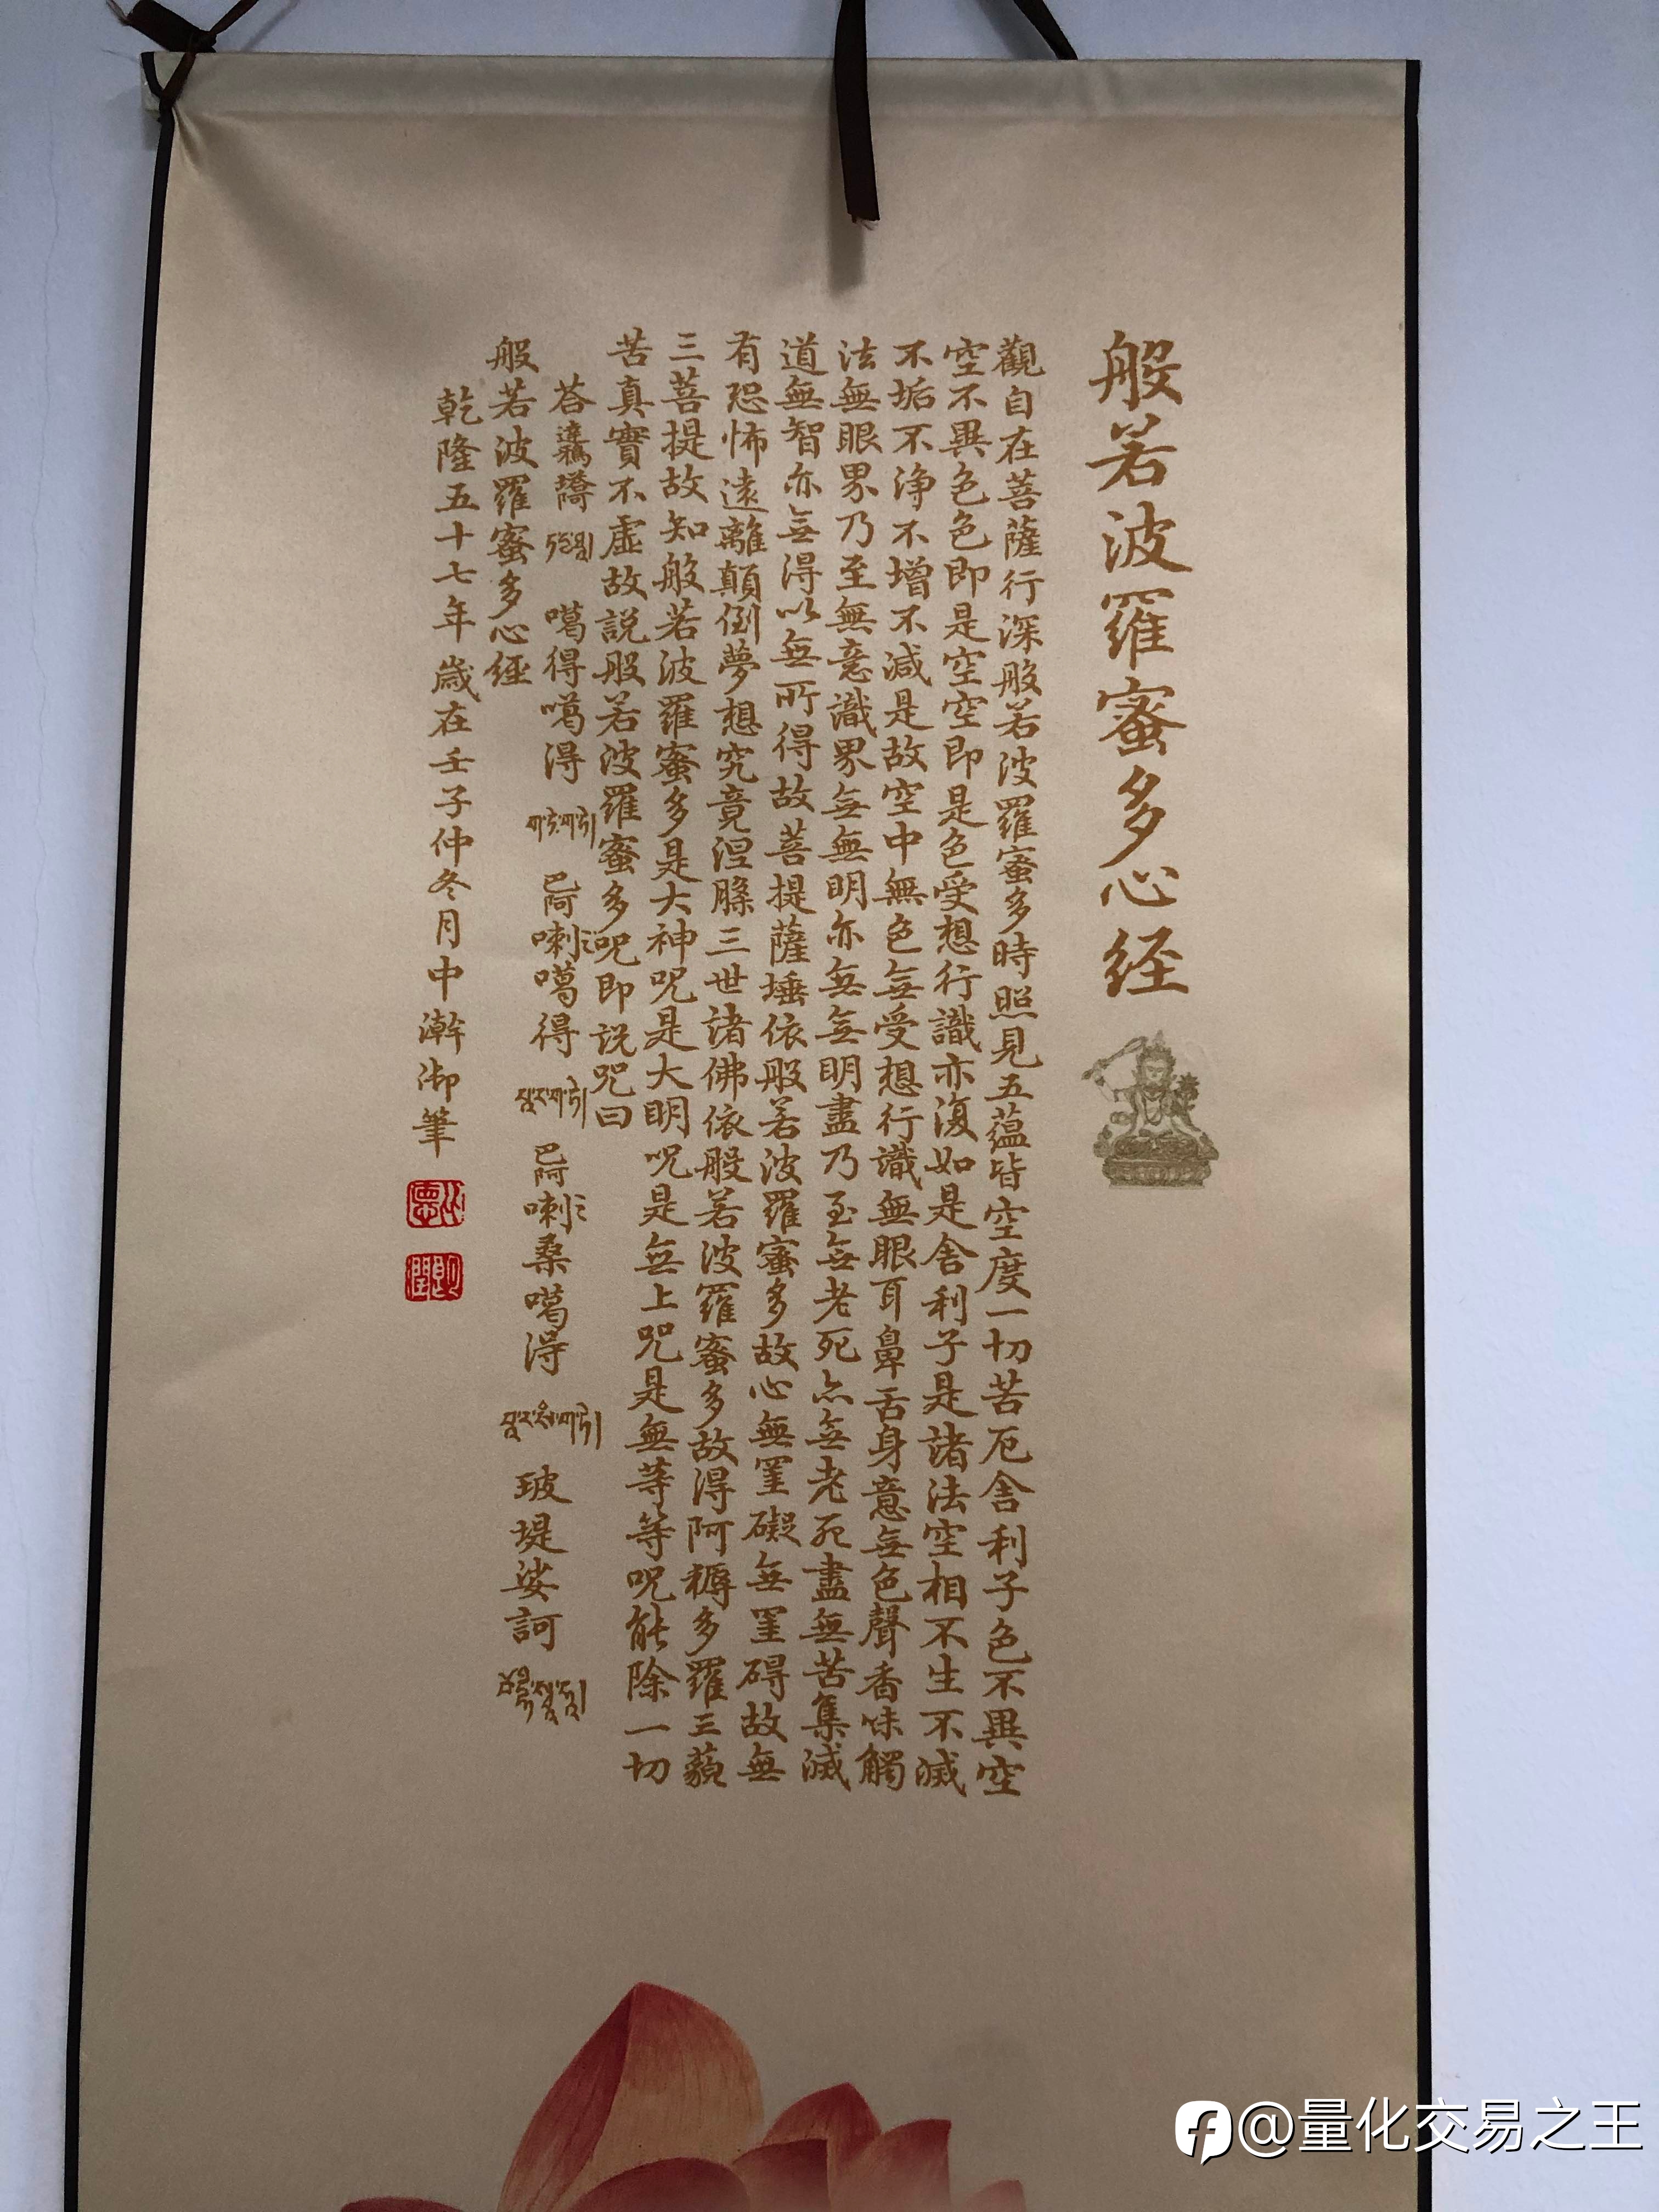 般若波羅蜜多心经
觀自在菩薩行深般若波羅蜜多時照見五蕴皆空度一切苦厄舎利子色不異空
空不異色色即是空空即是色受想行識亦復如是舎利子是諸法空相不生不滅
不垢不浄不增不减是故空中無色無受想行識無眼耳鼻舌身意無色聲香味觸
法無眼界乃至無意識界無無明亦無無明盡乃至無老死亦無老死盡無苦集滅
道無智亦無得以無所得故菩提薩埵依般若波羅蜜多故心無罣礙無罣碍故無
有恐怖遠離顛倒夢想究竟涅槃三世諸佛依般若波羅蜜多故得阿耨多羅三藐
三菩提故知般若波羅蜜多是大神咒是大明咒是無上咒是無等等咒能除一切
苦真實不虛故説般若波羅蜜多咒即説咒曰
噶得噶得 ག་ཏེ་ག་ཏེ། 巴阿喇噶得 པཱ་ར་ག་ཏེ། 巴阿喇桑噶得 པཱ་ར་སཾ་ག་ཏེ། 玻堤娑訶
般若波羅蜜多心経
乾隆五十七年歲在壬子仲冬月中澣御筆
@量化交易之王